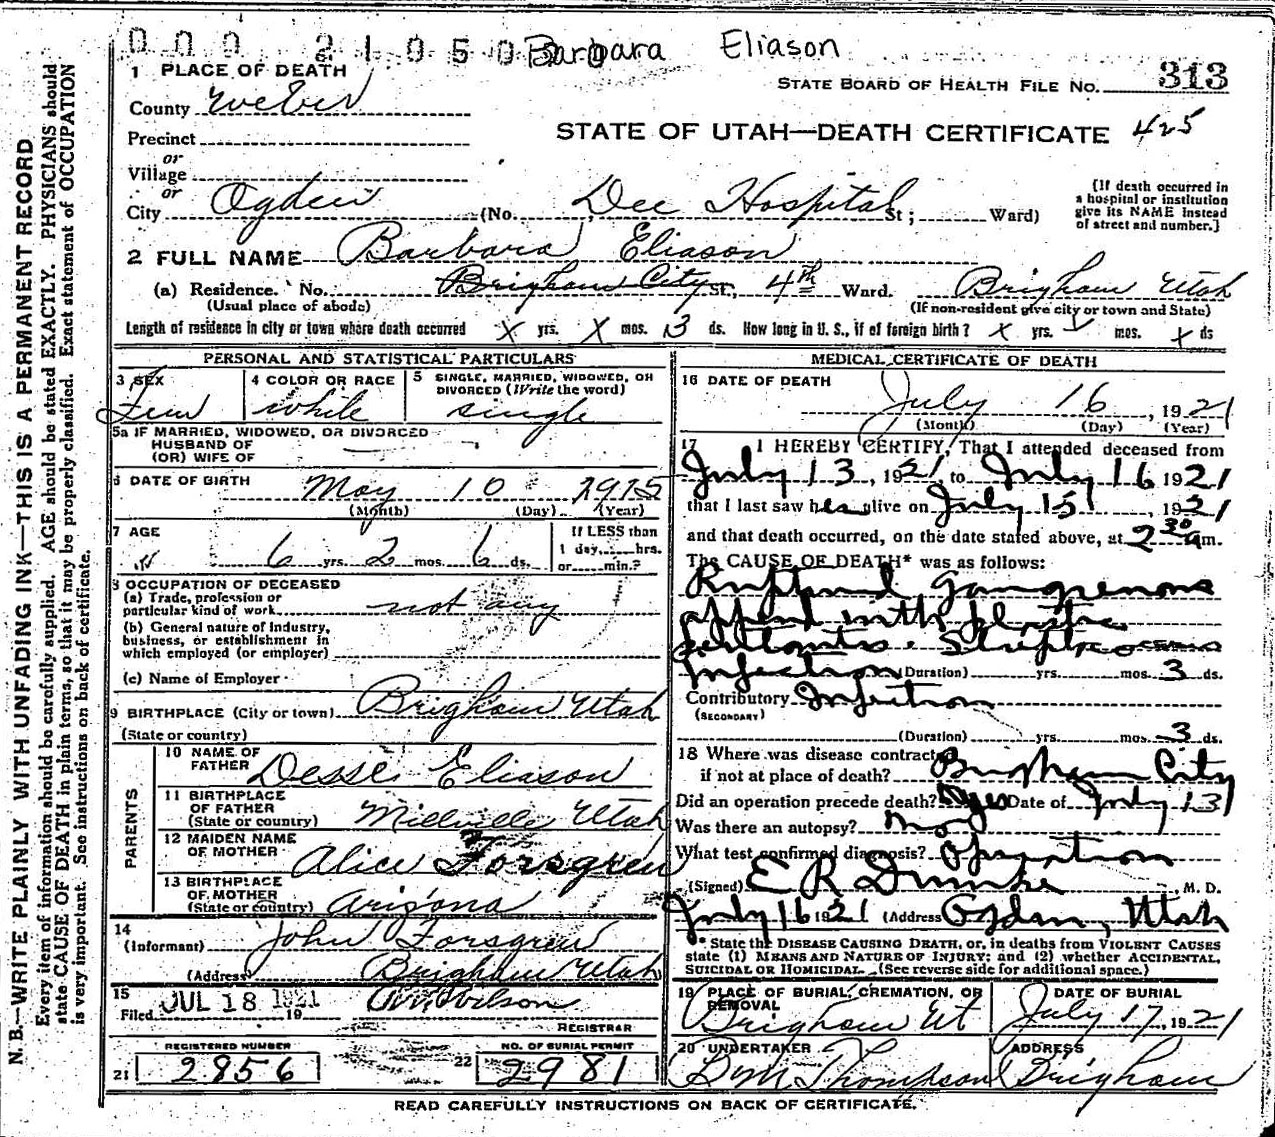 0 0 0 2 1 0 5 0 Barbara Eliason
1 PLACE OF DEATH
STATE BOARD OF HEALTH FILE No. 313
County Weber
STATE OF UTAH—DEATH CERTIFICATE 425
Precinct
or
Village
or
City Ogden (No. Dee Hospital St; Ward)
{If death occurred in
a hospital or institution
give its NAME instead
of street and number.}
2 FULL NAME Barbara Eliason
(a) Residence. No. Brigham City St., 4th Ward. Brigham Utah
(Usual place of abode) (If non-resident give city or town and State)
Length of residence in city or town where death occurred x yrs. x mos. 3 ds. How long in U. S., if of foreign birth? x yrs. mos. x ds
PERSONAL AND STATISTICAL PARTICULARS
3 SEX
Fem
4 COLOR OR RACE
white
5 SINGLE, MARRIED, WIDOWED, OR
DIVORCED (Write the word)
single
5a IF MARRIED, WIDOWED, OR DIVORCED
HUSBAND OF
(OR) WIFE OF
6 DATE OF BIRTH May 10 1915
(Month) (Day) (Year)
7 AGE
6 yrs. 2 mos. 6 ds.
If LESS than
1 day, hrs.
or min.?
8 OCCUPATION OF DECEASED
(a) Trade, profession or
particular kind of work not any
(b) General nature of industry,
business, or establishment in
which employed (or employer)
(c) Name of Employer
9 BIRTHPLACE (City or town) Brigham Utah
(State or country)
PARENTS
10 NAME OF
FATHER Desse Eliason
11 BIRTHPLACE
OF FATHER
(State or country) Millville Utah
12 MAIDEN NAME
OF MOTHER Alice Forsgren
13 BIRTHPLACE
OF MOTHER
(State or country) Arizona
14
(Informant) John Forsgren
(Address) Brigham Utah
15
Filed JUL 18 1921 19 Wilson
REGISTRAR
REGISTERED NUMBER
21 2856
NO. OF BURIAL PERMIT
22 2981
MEDICAL CERTIFICATE OF DEATH
16 DATE OF DEATH
July 16, 1921
(Month) (Day) (Year)
17 I HEREBY CERTIFY, That I attended deceased from
July 13, 1921, to July 16 1921
that I last saw her alive on July 15, 1921
and that death occurred, on the date stated above, at 2 30 am.
The CAUSE OF DEATH* was as follows:
Ruptured Gangrenous
append with plastic
Infection (Duration) yrs. mos. 3 ds.
Contributory Infection
(SECONDARY)
(Duration) yrs. mos. 3 ds.
18 Where was disease contracted
if not at place of death? Brigham City
Did an operation precede death? yes Date of July 13
Was there an autopsy? no
What test confirmed diagnosis? Operation
(Signed) E R Dumke, M. D.
July 16 1921 (Address Ogden, Utah
* State the DISEASE CAUSING DEATH, or, in deaths from VIOLENT CAUSES
state (1) MEANS AND NATURE OF INJURY; and (2) whether ACCIDENTAL,
SUICIDAL OR HOMICIDAL. (See reverse side for additional space.)
19 PLACE OF BURIAL, CREMATION, OR
REMOVAL
Brigham Ut
DATE OF BURIAL
July 17, 1921
20 UNDERTAKER
Thompson
ADDRESS
Brigham
READ CAREFULLY INSTRUCTIONS ON BACK OF CERTIFICATE.
N. B.—WRITE PLAINLY WITH UNFADING INK—THIS IS A PERMANENT RECORD
Every item of information should be carefully supplied. AGE should be stated EXACTLY. PHYSICIANS should
state CAUSE OF DEATH in plain terms, so that it may be properly classified. Exact statement of OCCUPATION
is very important. See instructions on back of certificate.